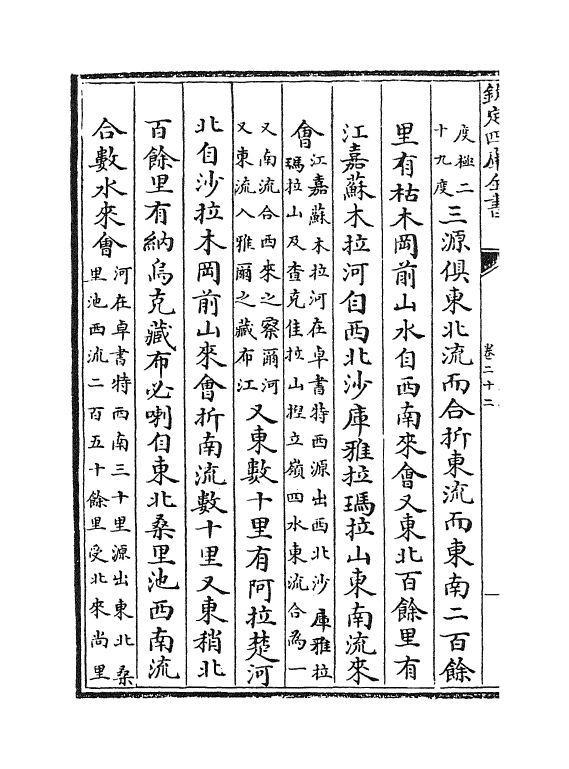 欽定四庫全書
卷二十二
度極二
十九度
三源俱東北流而合折東流而東南二百餘
里有枯木岡前山水自西南來會又東北百餘里有
江嘉蘇木拉河自西北沙庫雅拉瑪拉山東南流來
會
江嘉蘇木拉河在卓書特西源出西北沙庫雅拉
瑪拉山及查克佳拉山捏立嶺四水東流合為一
又南流合西來之察爾河
又東流入雅爾之藏布江
又東數十里有阿拉楚河
北自沙拉木岡前山來會折南流數十里又東稍北
百餘里有納烏克藏布必喇自東北桑里池西南流
合數水來會
河在卓書特西南三十里源出東北桑
里池西流二百五十餘里受北來尚里